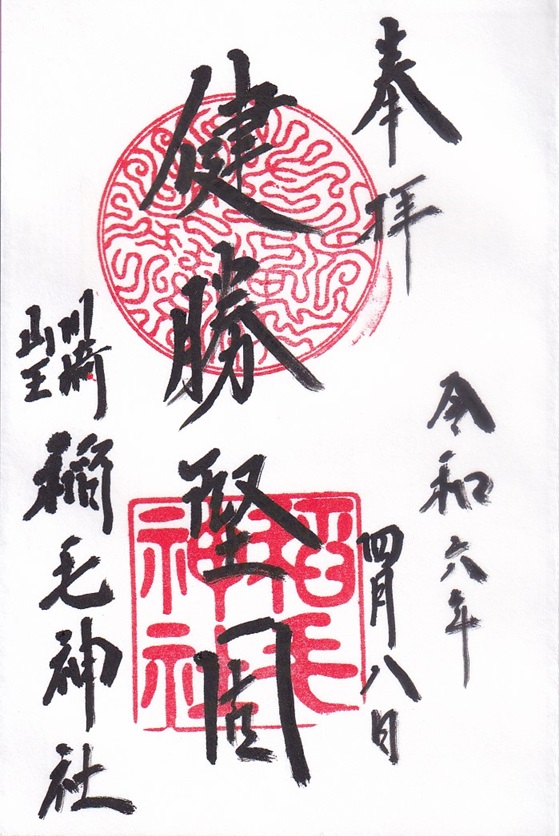 奉拝
令和六年
四月八日
健勝堅固
川崎
山王
稲毛神社
稲毛
神社